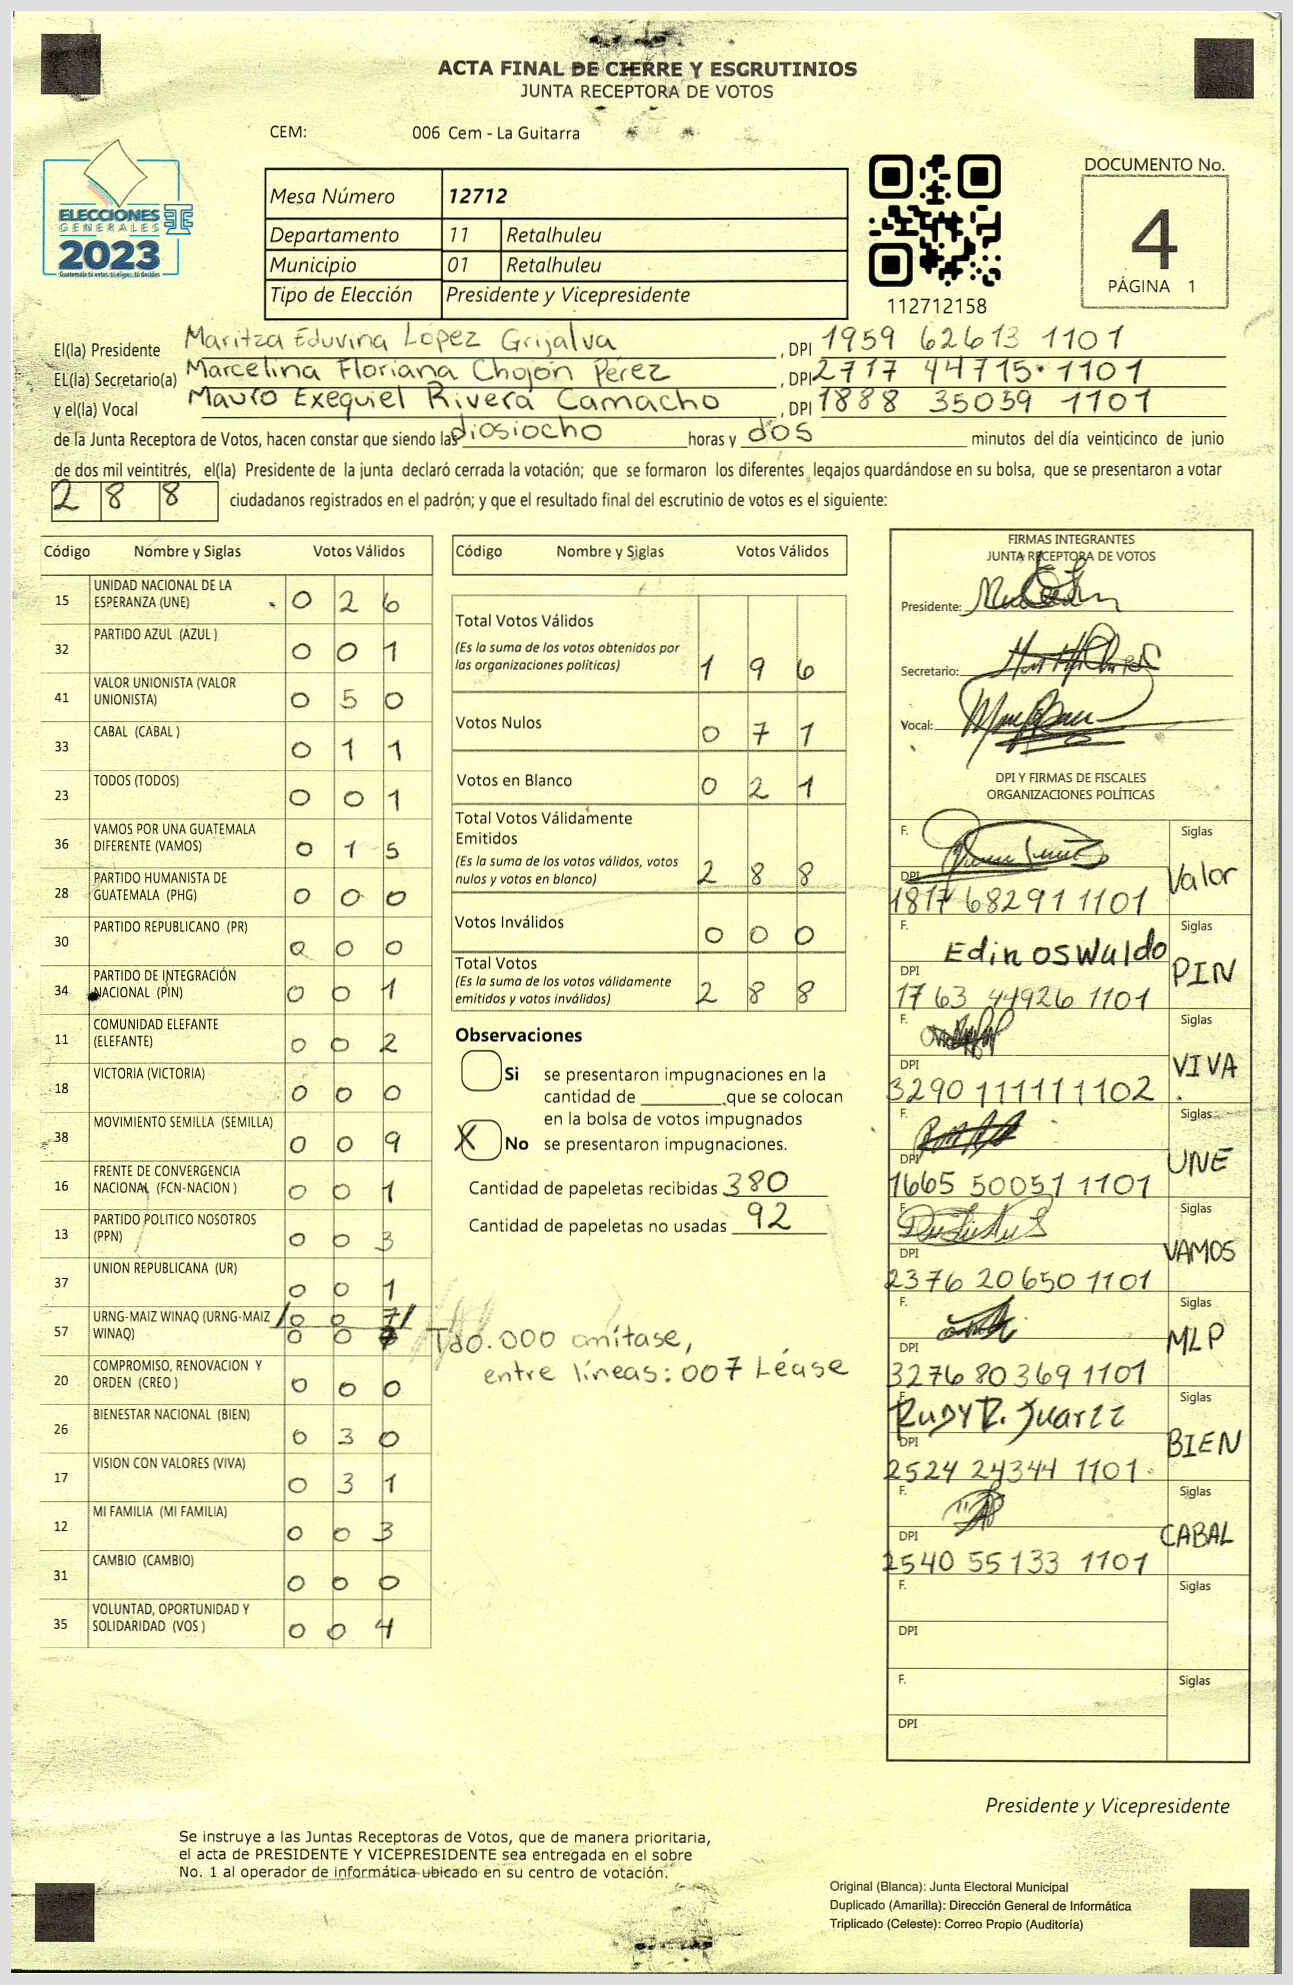 ACTA FINAL DE CIERRE Y ESCRUTINIOS
JUNTA RECEPTORA DE VOTOS
CEM: 006 Cem - La Guitarra
ELECCIONES
GENERALES
2023
Mesa Número 12712
Departamento 11 Retalhuleu
Municipio 01 Retalhuleu
Tipo de Elección Presidente y Vicepresidente
112712158
DOCUMENTO No.
4
PÁGINA 1
El(la) Presidente Maritza Eduvina López Grijalva, DPI 1959 62613 1101
EL(la) Secretario(a) Marcelina Floriana Chojón Pérez, DPI 2717 44715 1101
y el(la) Vocal Mauro Exequiel Rivera Camacho, DPI 1888 35059 1101
de la Junta Receptora de Votos, hacen constar que siendo las diosiocho horas y dos minutos del día veinticinco de junio
de dos mil veintitrés, el(la) Presidente de la junta declaró cerrada la votación; que se formaron los diferentes legajos guardándose en su bolsa, que se presentaron a votar
288 ciudadanos registrados en el padrón; y que el resultado final del escrutinio de votos es el siguiente:
Código Nombre y Siglas Votos Válidos
15 UNIDAD NACIONAL DE LA ESPERANZA (UNE) 0 2 6
32 PARTIDO AZUL (AZUL ) 0 0 1
41 VALOR UNIONISTA (VALOR UNIONISTA) 0 5 0
33 CABAL (CABAL ) 0 1 1
23 TODOS (TODOS) 0 0 1
36 VAMOS POR UNA GUATEMALA DIFERENTE (VAMOS) 0 1 5
28 PARTIDO HUMANISTA DE GUATEMALA (PHG) 0 0 0
30 PARTIDO REPUBLICANO (PR) 0 0 0
34 PARTIDO DE INTEGRACIÓN NACIONAL (PIN) 0 0 1
11 COMUNIDAD ELEFANTE (ELEFANTE) 0 0 2
18 VICTORIA (VICTORIA) 0 0 0
38 MOVIMIENTO SEMILLA (SEMILLA) 0 0 9
16 FRENTE DE CONVERGENCIA NACIONAL (FCN-NACION ) 0 0 1
13 PARTIDO POLITICO NOSOTROS (PPN) 0 0 3
37 UNION REPUBLICANA (UR) 0 0 1
57 URNG-MAIZ WINAQ (URNG-MAIZ WINAQ) /0 0 7/
0 0
Tdo. 000 omítase,
entre líneas: 007 Léase
20 COMPROMISO, RENOVACION Y ORDEN (CREO ) 0 0 0
26 BIENESTAR NACIONAL (BIEN) 0 3 0
17 VISION CON VALORES (VIVA) 0 3 1
12 MI FAMILIA (MI FAMILIA) 0 0 3
31 CAMBIO (CAMBIO) 0 0 0
35 VOLUNTAD, OPORTUNIDAD Y SOLIDARIDAD (VOS ) 0 0 4
Código Nombre y Siglas Votos Válidos
Total Votos Válidos
(Es la suma de los votos obtenidos por
las organizaciones políticas) 1 9 6
Votos Nulos 0 7 1
Votos en Blanco 0 2 1
Total Votos Válidamente
Emitidos
(Es la suma de los votos válidos, votos
nulos y votos en blanco) 2 8 8
Votos Inválidos 0 0 0
Total Votos
(Es la suma de los votos válidamente
emitidos y votos inválidos) 2 8 8
Observaciones
Si se presentaron impugnaciones en la
cantidad de ________,que se colocan
en la bolsa de votos impugnados
X No se presentaron impugnaciones.
Cantidad de papeletas recibidas 380
Cantidad de papeletas no usadas 92
FIRMAS INTEGRANTES
JUNTA RECEPTORA DE VOTOS
Presidente:
Secretario:
Vocal:
DPI Y FIRMAS DE FISCALES
ORGANIZACIONES POLÍTICAS
F. Siglas Valor
DPI 1817 68291 1101
F. Edin oswaldo Siglas PIN
DPI 1763 44926 1101
F. Siglas VIVA
DPI 3290 11111 1102
F. Siglas UNE
DPI 1665 50051 1101
F. Siglas VAMOS
DPI 2376 20650 1101
F. Siglas MLP
DPI 3276 80369 1101
F. Rudy R. Juarez Siglas BIEN
DPI 2524 24344 1101
F. Siglas CABAL
DPI 2540 55133 1101
F. Siglas
DPI
F. Siglas
DPI
Presidente y Vicepresidente
Se instruye a las Juntas Receptoras de Votos, que de manera prioritaria,
el acta de PRESIDENTE Y VICEPRESIDENTE sea entregada en el sobre
No. 1 al operador de informática ubicado en su centro de votación.
Original (Blanca): Junta Electoral Municipal
Duplicado (Amarilla): Dirección General de Informática
Triplicado (Celeste): Correo Propio (Auditoría)